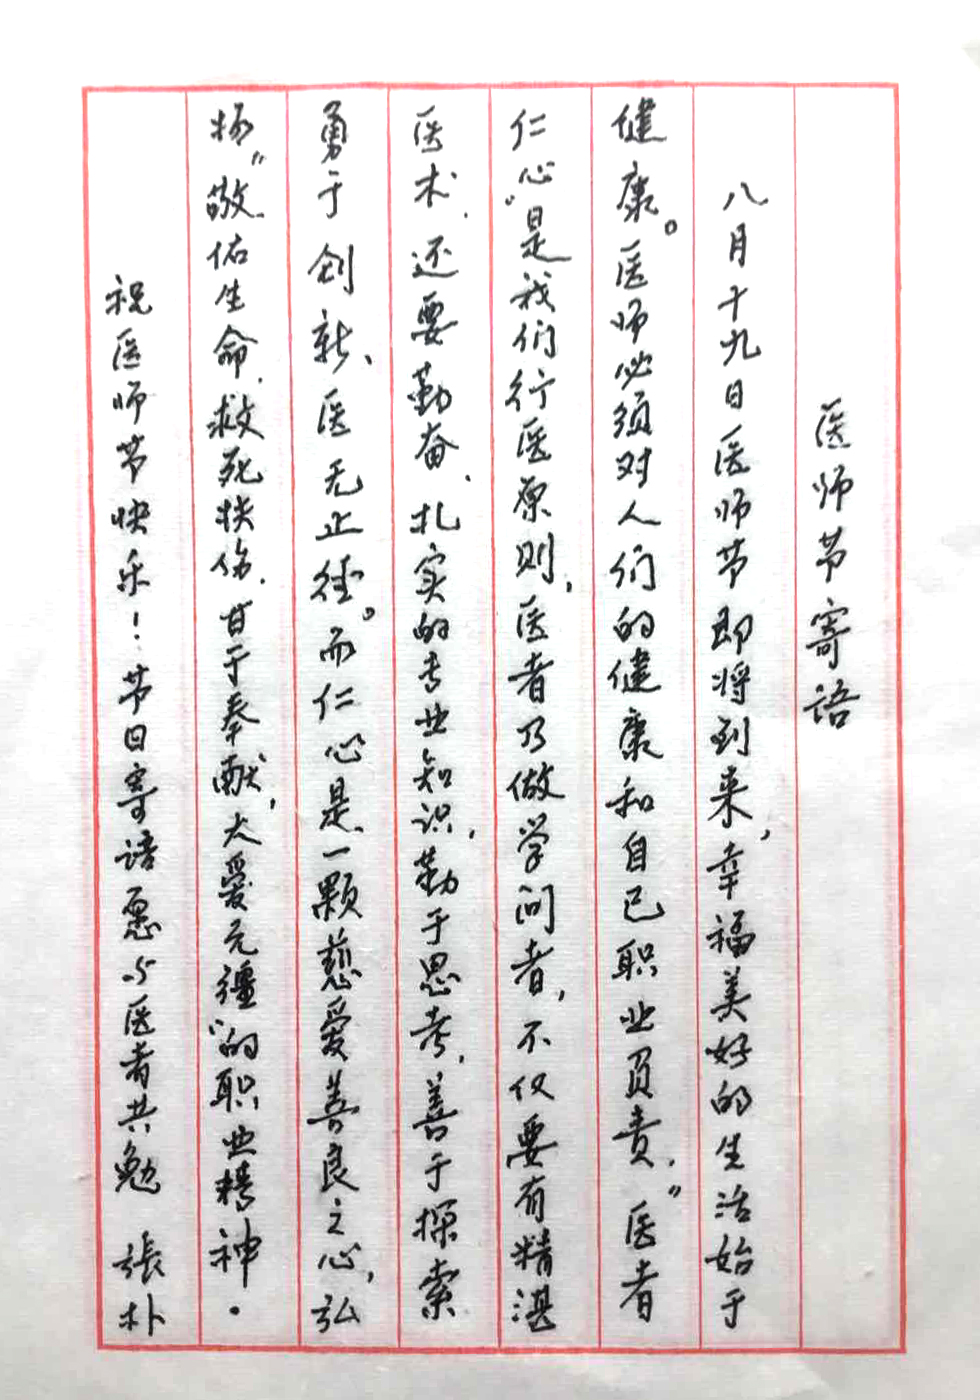 医师节寄语
八月十九日医师节即将到来，幸福美好的生活始于
健康。医师必须对人们的健康和自己职业负责，“医者
仁心”是我们行医原则，医者乃做学问者，不仅要有精湛
医术，还要勤奋、扎实的专业知识，勤于思考，善于探索
勇于创新、医无止径。而仁心是一颗慈爱善良之心，弘
扬“敬佑生命，救死扶伤，甘于奉献，大爱无疆”的职业精神。
祝医师节快乐！节日寄语愿与医者共勉 張朴